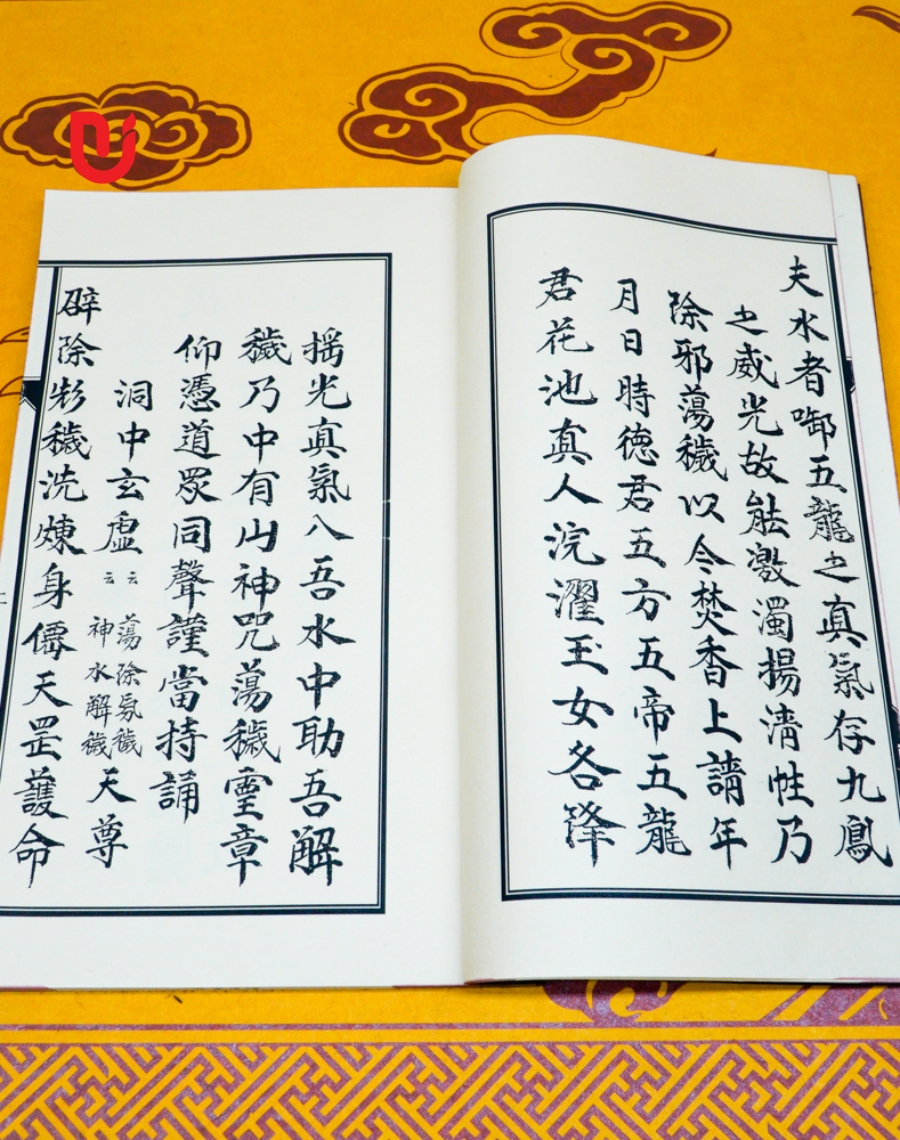 夫水者啣五龍之真氣存九鳳
之威光故能激濁揚清性乃
除邪蕩穢以今焚香上請年
月日時德君五方五帝五龍
君花池真人浣濯玉女各降
揺光真氣八吾水中助吾解
穢乃中有山神咒蕩穢霊章
仰憑道眾同聲謹當持誦
洞中玄虛云云 蕩除氛穢 神水解穢 天尊
辟除氛穢洗煉身僊天罡護命